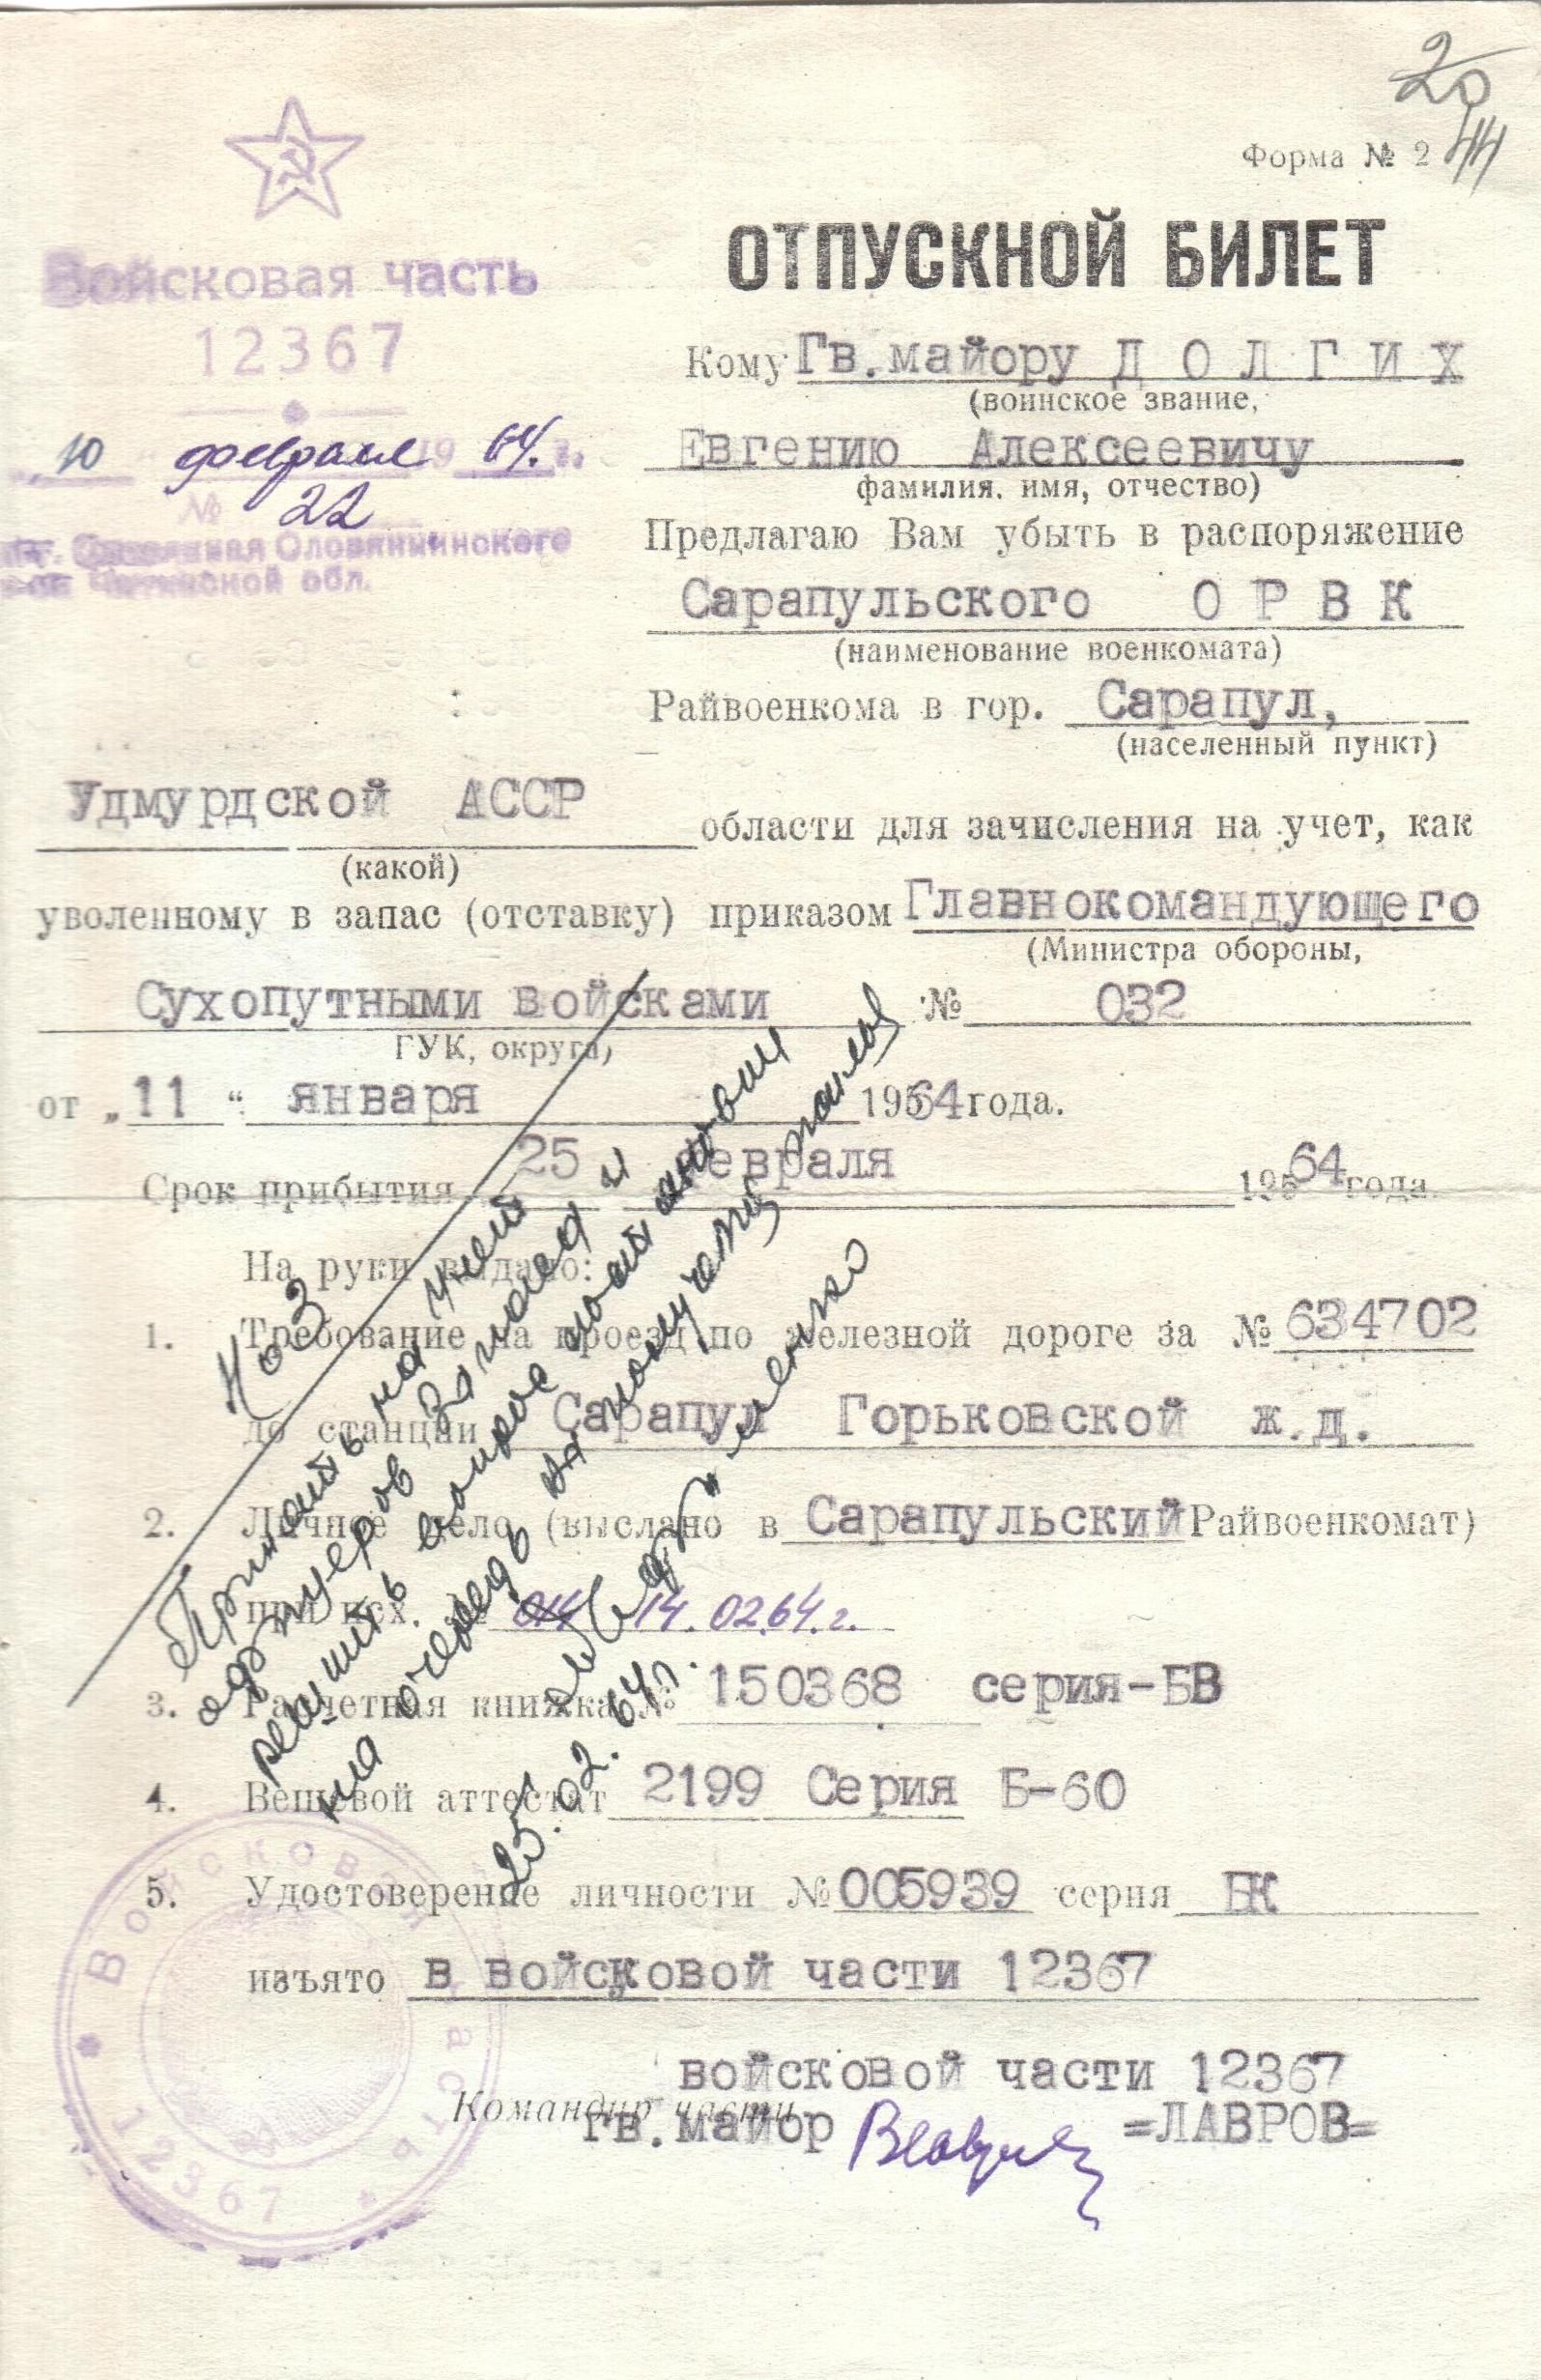 20
44
Форма № 2
Войсковая часть
12367
10 февраля 1964. г.
№ 22
Оловяннинского
Читинской обл.
ОТПУСКНОЙ БИЛЕТ
Кому Гв.майору Д О Л Г И Х
(воинское звание,
Евгению Алексеевичу
фамилия. имя, отчество)
Предлагаю Вам убыть в распоряжение
Сарапульского О Р В К
(наименование военкомата)
Райвоенкома в гор. Сарапул,
(населенный пункт)
Удмурдской АССР области для зачисления на учет, как
(какой)
уволенному в запас (отставку) приказом Главнокомандующего
(Министра обороны,
Сухопутными войсками № 032
ГУК, округа)
от „11“ января 1964 года.
Срок прибытия 25 февраля 1964 года.
На руки выдано:
1. Требование на проезд по железной дороге за № 634702
до станции Сарапул Горьковской ж.д.
2. Личное дело (выслано в Сарапульский Райвоенкомат)
при исх. № 14.02.64.г.
3. Расчетная книжка № 150368 серия-БВ
4. Вещевой аттестат 2199 Серия Б-60
5. Удостоверение личности № 005939 серия БК
изъято в войсковой части 12367
войсковой части 12367
Командир части
гв.майор =ЛАВРОВ=
Войсковая часть 12367
Принять на учет
офицеров запаса и
решить вопрос постановки
на очередь на получение
25.02.64г.